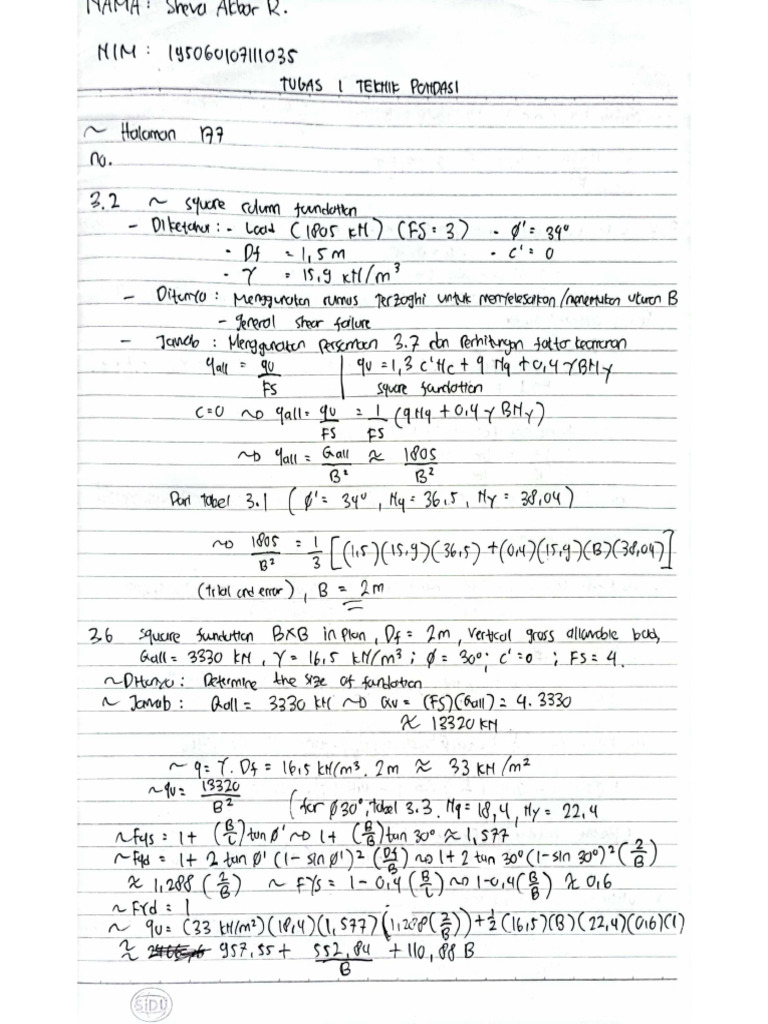 NAMA : Sheva Akbar R.
NIM : 195060107111035
TUGAS 1 TEKNIK PONDASI
~ Halaman 177
no.
3.2 ~ square colum foundation
- Diketahui : - Load (1805 kN) (FS = 3) - ∅' = 34°
- Df = 1,5 m - c' = 0
- γ = 15,9 kN/m³
- Ditanya : Menggunakan rumus Terzaghi untuk menyelesaikan/menentukan ukuran B
- general shear failure
- Jawab : Menggunakan persamaan 3.7 dan Perhitungan faktor keamanan
qall = qu/FS | qu = 1,3 c'Nc + q Nq + 0,4 γBNγ
square foundation
C=0 ~> qall = qu/FS = 1/FS (qNq + 0,4 γ BNγ)
~> qall = Qall/B² ≈ 1805/B²
Dari tabel 3.1 (∅' = 34°, Nq = 36.5, Nγ = 38,04)
~> 1805/B² = 1/3 [(1,5)(15,9)(36,5) + (0,4)(15,9)(B)(38,04)]
(trial and error), B = 2m
3.6 square fundation B×B in plan, Df = 2m, vertical gross allowable load,
Qall = 3330 KN, γ = 16,5 kN/m³ ; ∅ = 30° ; c' = 0 ; FS = 4.
~ Ditanya : Determine the size of fundation
~ Jawab : Qall = 3330 kN ~> Qu = (FS)(Qall) = 4. 3330
≈ 13320 KN
~ q = γ. Df = 16,5 kN/m³. 2m ≈ 33 KN/m²
~ qu = 13320/B² (for ∅30°, tabel 3.3. Nq = 18,4, Nγ = 22,4
~ Fqs = 1 + (B/L) tan ∅' ~> 1 + (B/B) tan 30° ≈ 1,577
~ Fqd = 1 + 2 tan ∅' (1 - sin ∅')² (Df/B) ~> 1 + 2 tan 30° (1 - sin 30°)² (2/B)
≈ 1,288 (2/B) ~ Fγs = 1 - 0,4 (B/L) ~> 1 - 0,4 (B/B) ≈ 0,6
~ Fγd = 1
~ qu = (33 kN/m²)(18,4)(1,577)(1,288 (2/B)) + 1/2 (16,5)(B)(22,4)(0,6)(1)
≈ 957,55 + 552,84/B + 110,88 B
SiDU